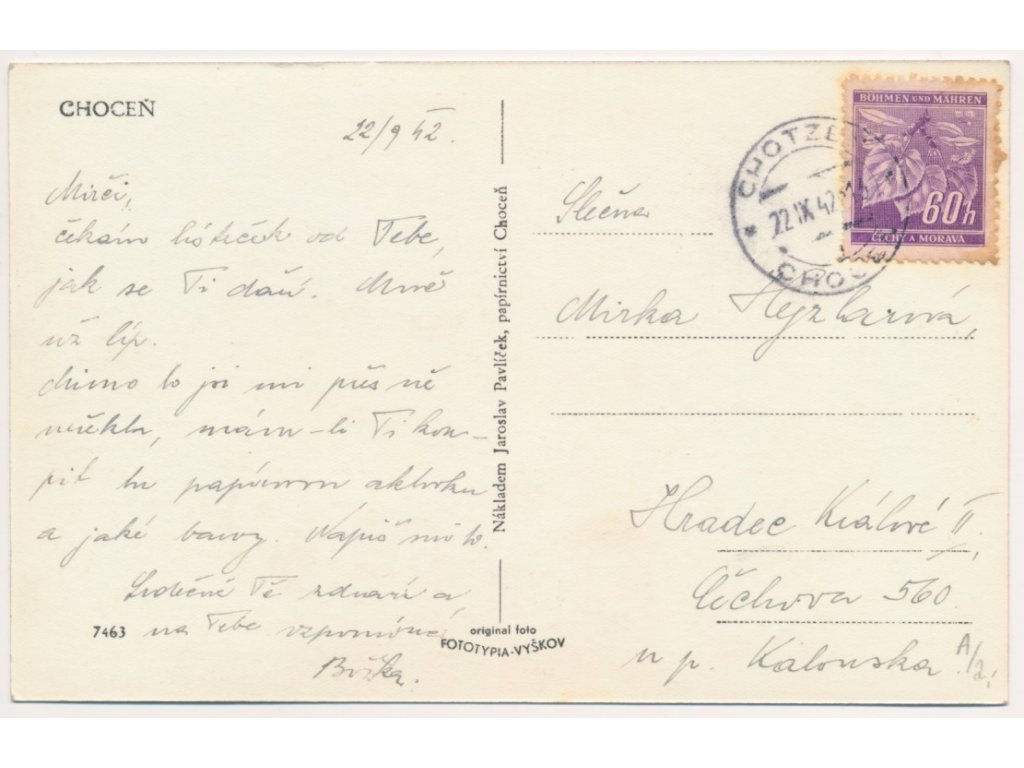 CHOCEŇ
22/9 42.
Mirči,
čekám lísteček od Tebe,
jak se Ti daří. Mně
už líp.
Mimo to jsi mi přesně
neřekla, mám-li Ti kou-
pit tu papírovou aktovku
a jaké barvy. Napiš mi to.
Srdečně Tě zdraví a
na Tebe vzpomíná
Boška.
7463
Nákladem Jaroslav Pavlíček, papírnictví Choceň
original foto
FOTOTYPIA-VYŠKOV
CHOTZEN
22.IX.42
CHOC
BÖHMEN UND MÄHREN
60h
ČECHY A MORAVA
Slečna
Mirka Hejzlarová,
Hradec Králové II,
Čechova 560.
u p. Kalouska
A/2,